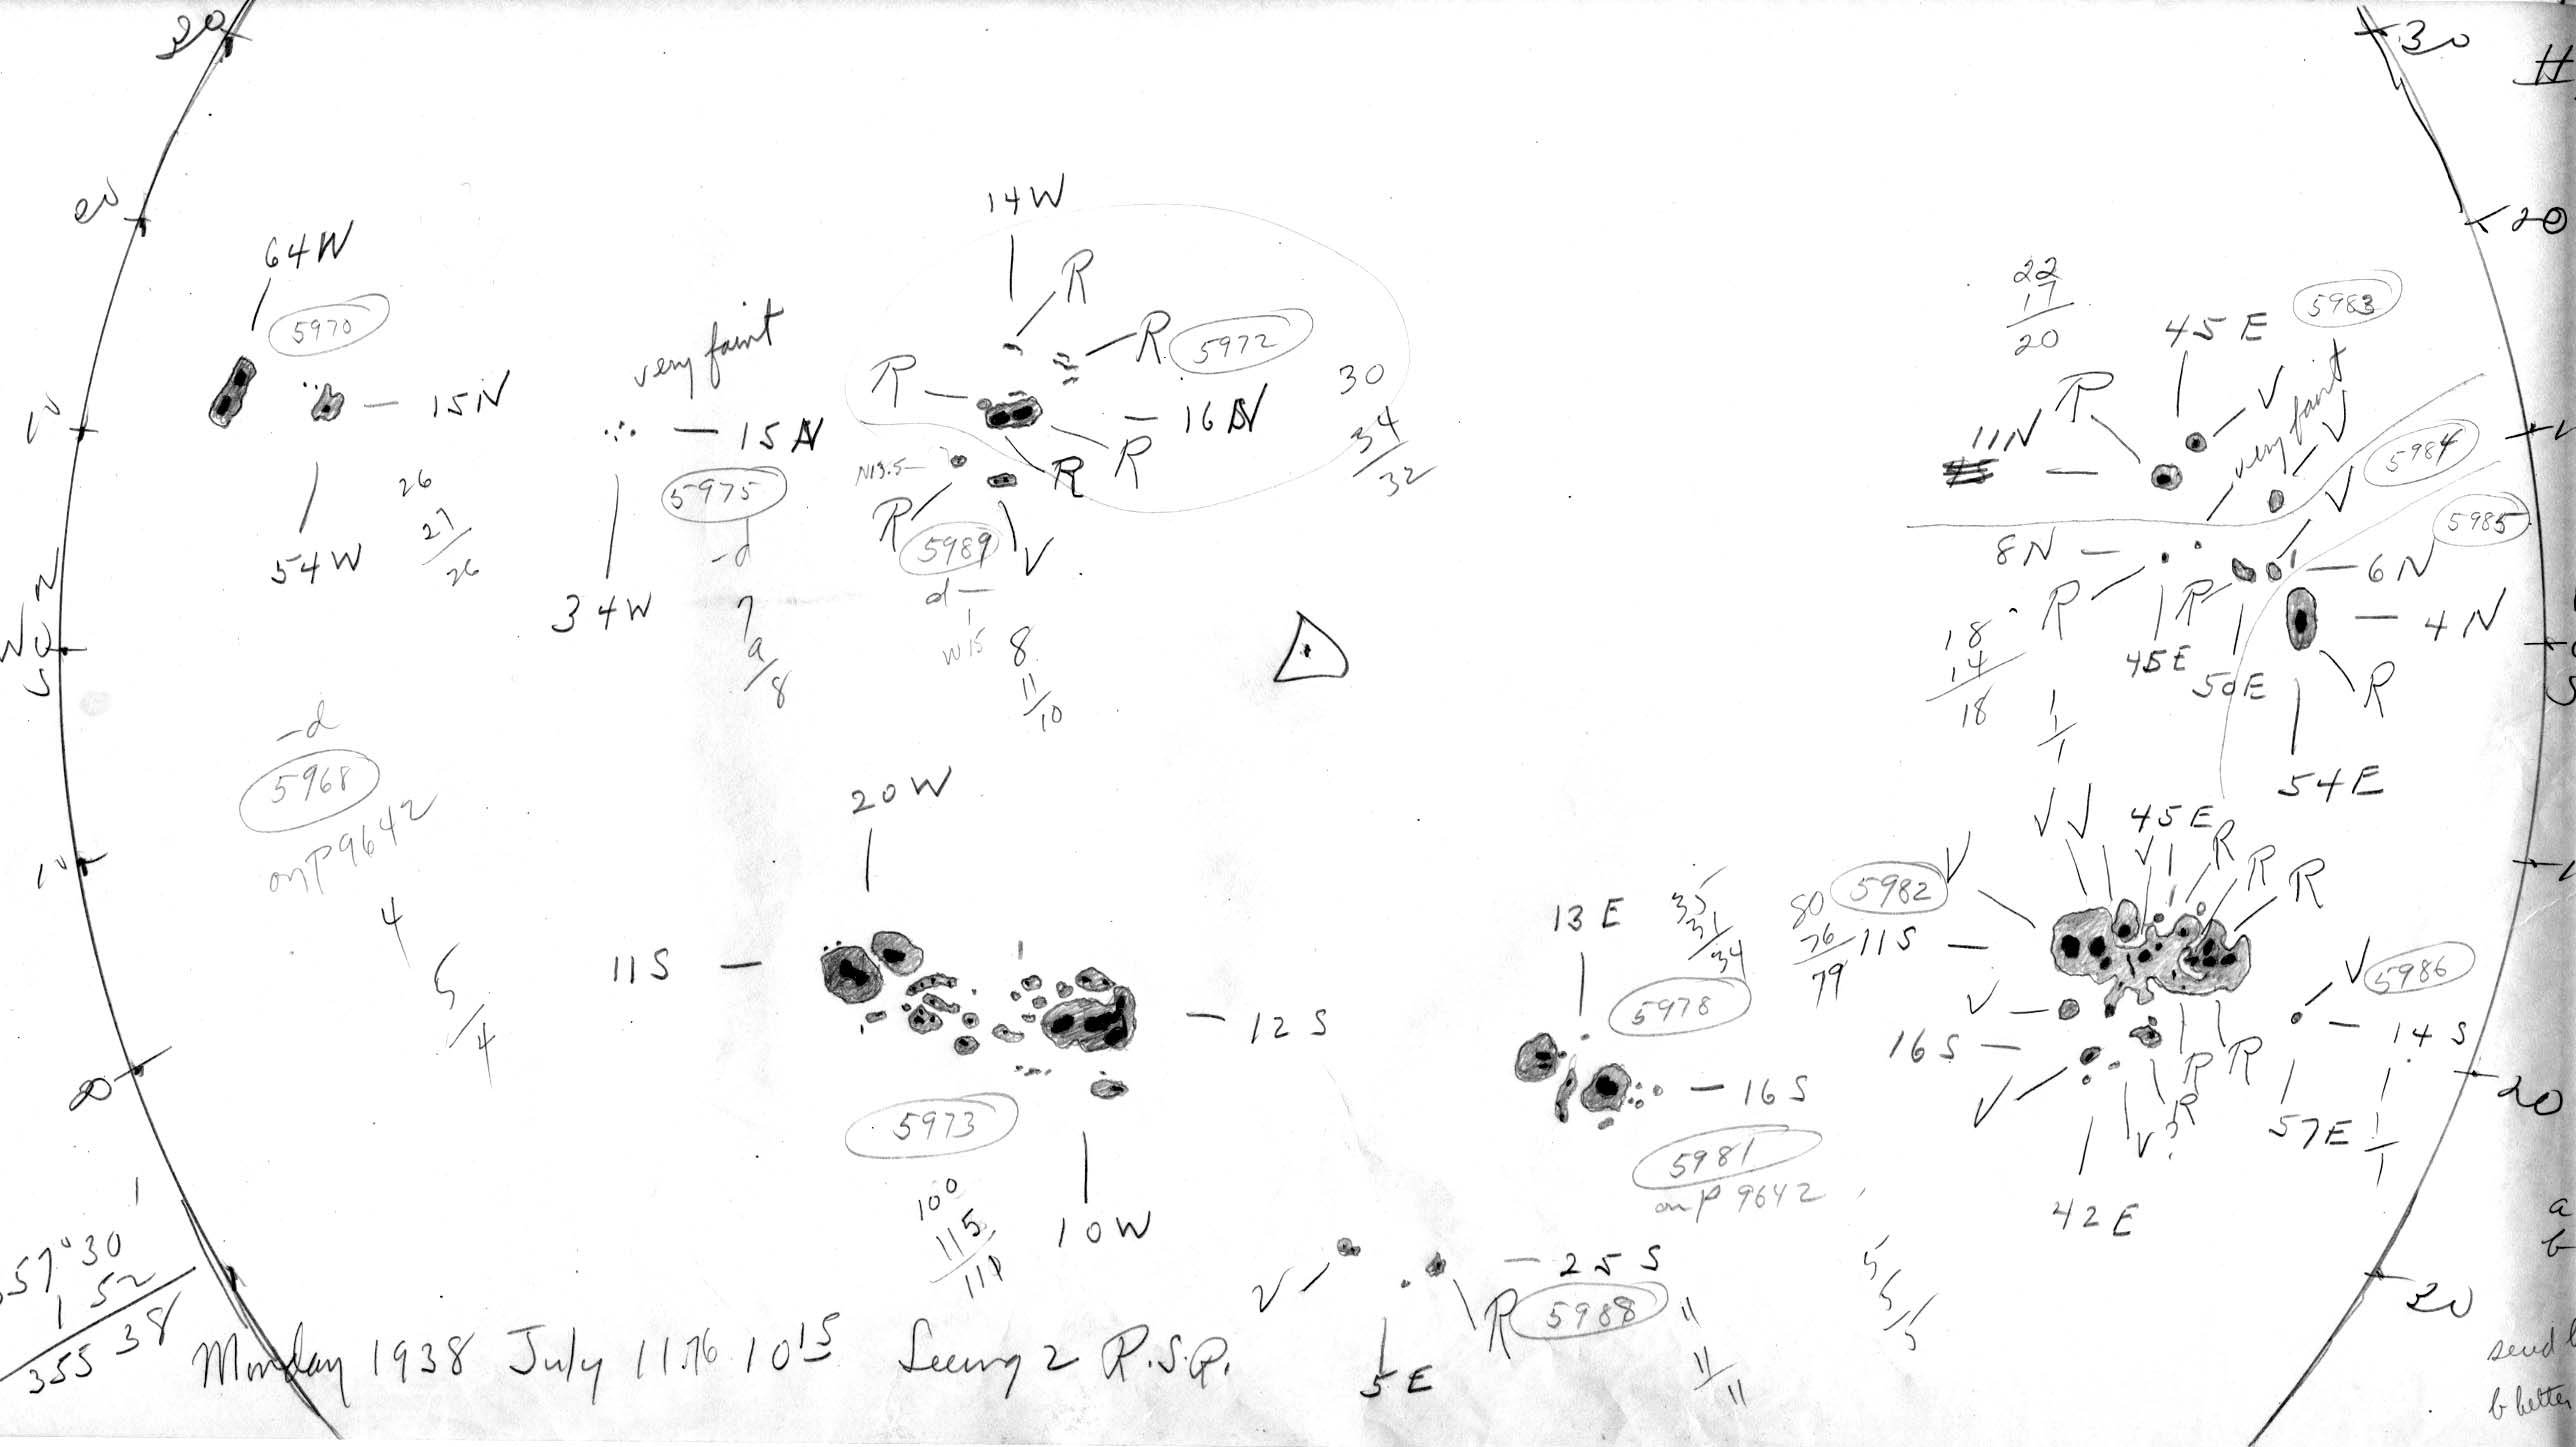 30
30
20
20
14W
64W
R
R
5970
5972
R
very faint
15N
15N
16N
30
34
32
N13.5
R
R
R
5975
-d
7
9
8
26
27
26
54W
34W
5989
V
d
W15
8
11
10
22
17
20
45E
5983
V
R
11N
very faint
V
5984
V
5985
8N
6N
R
R
4N
18
14
18
45E
50E
R
1
1
1
54E
10
N
W
S
-d
5968
on p 9642
4
5
4
20W
11S
12S
5973
100
115
111
10W
13E
35
31
34
5978
16S
5981
on p 9642
5
5
5
V
V
45E
V
V
R
R
R
80
76
79
5982
11S
V
5986
V
16S
14S
V
R
R
R
V?
57E
1
1
1
42E
10
20
20
30
25S
V
R
5988
11
11
11
5E
57°30
1 52
355 38
Monday 1938 July 11.76 10 15 Seeing 2 R.S.R.
a
b
send
b better